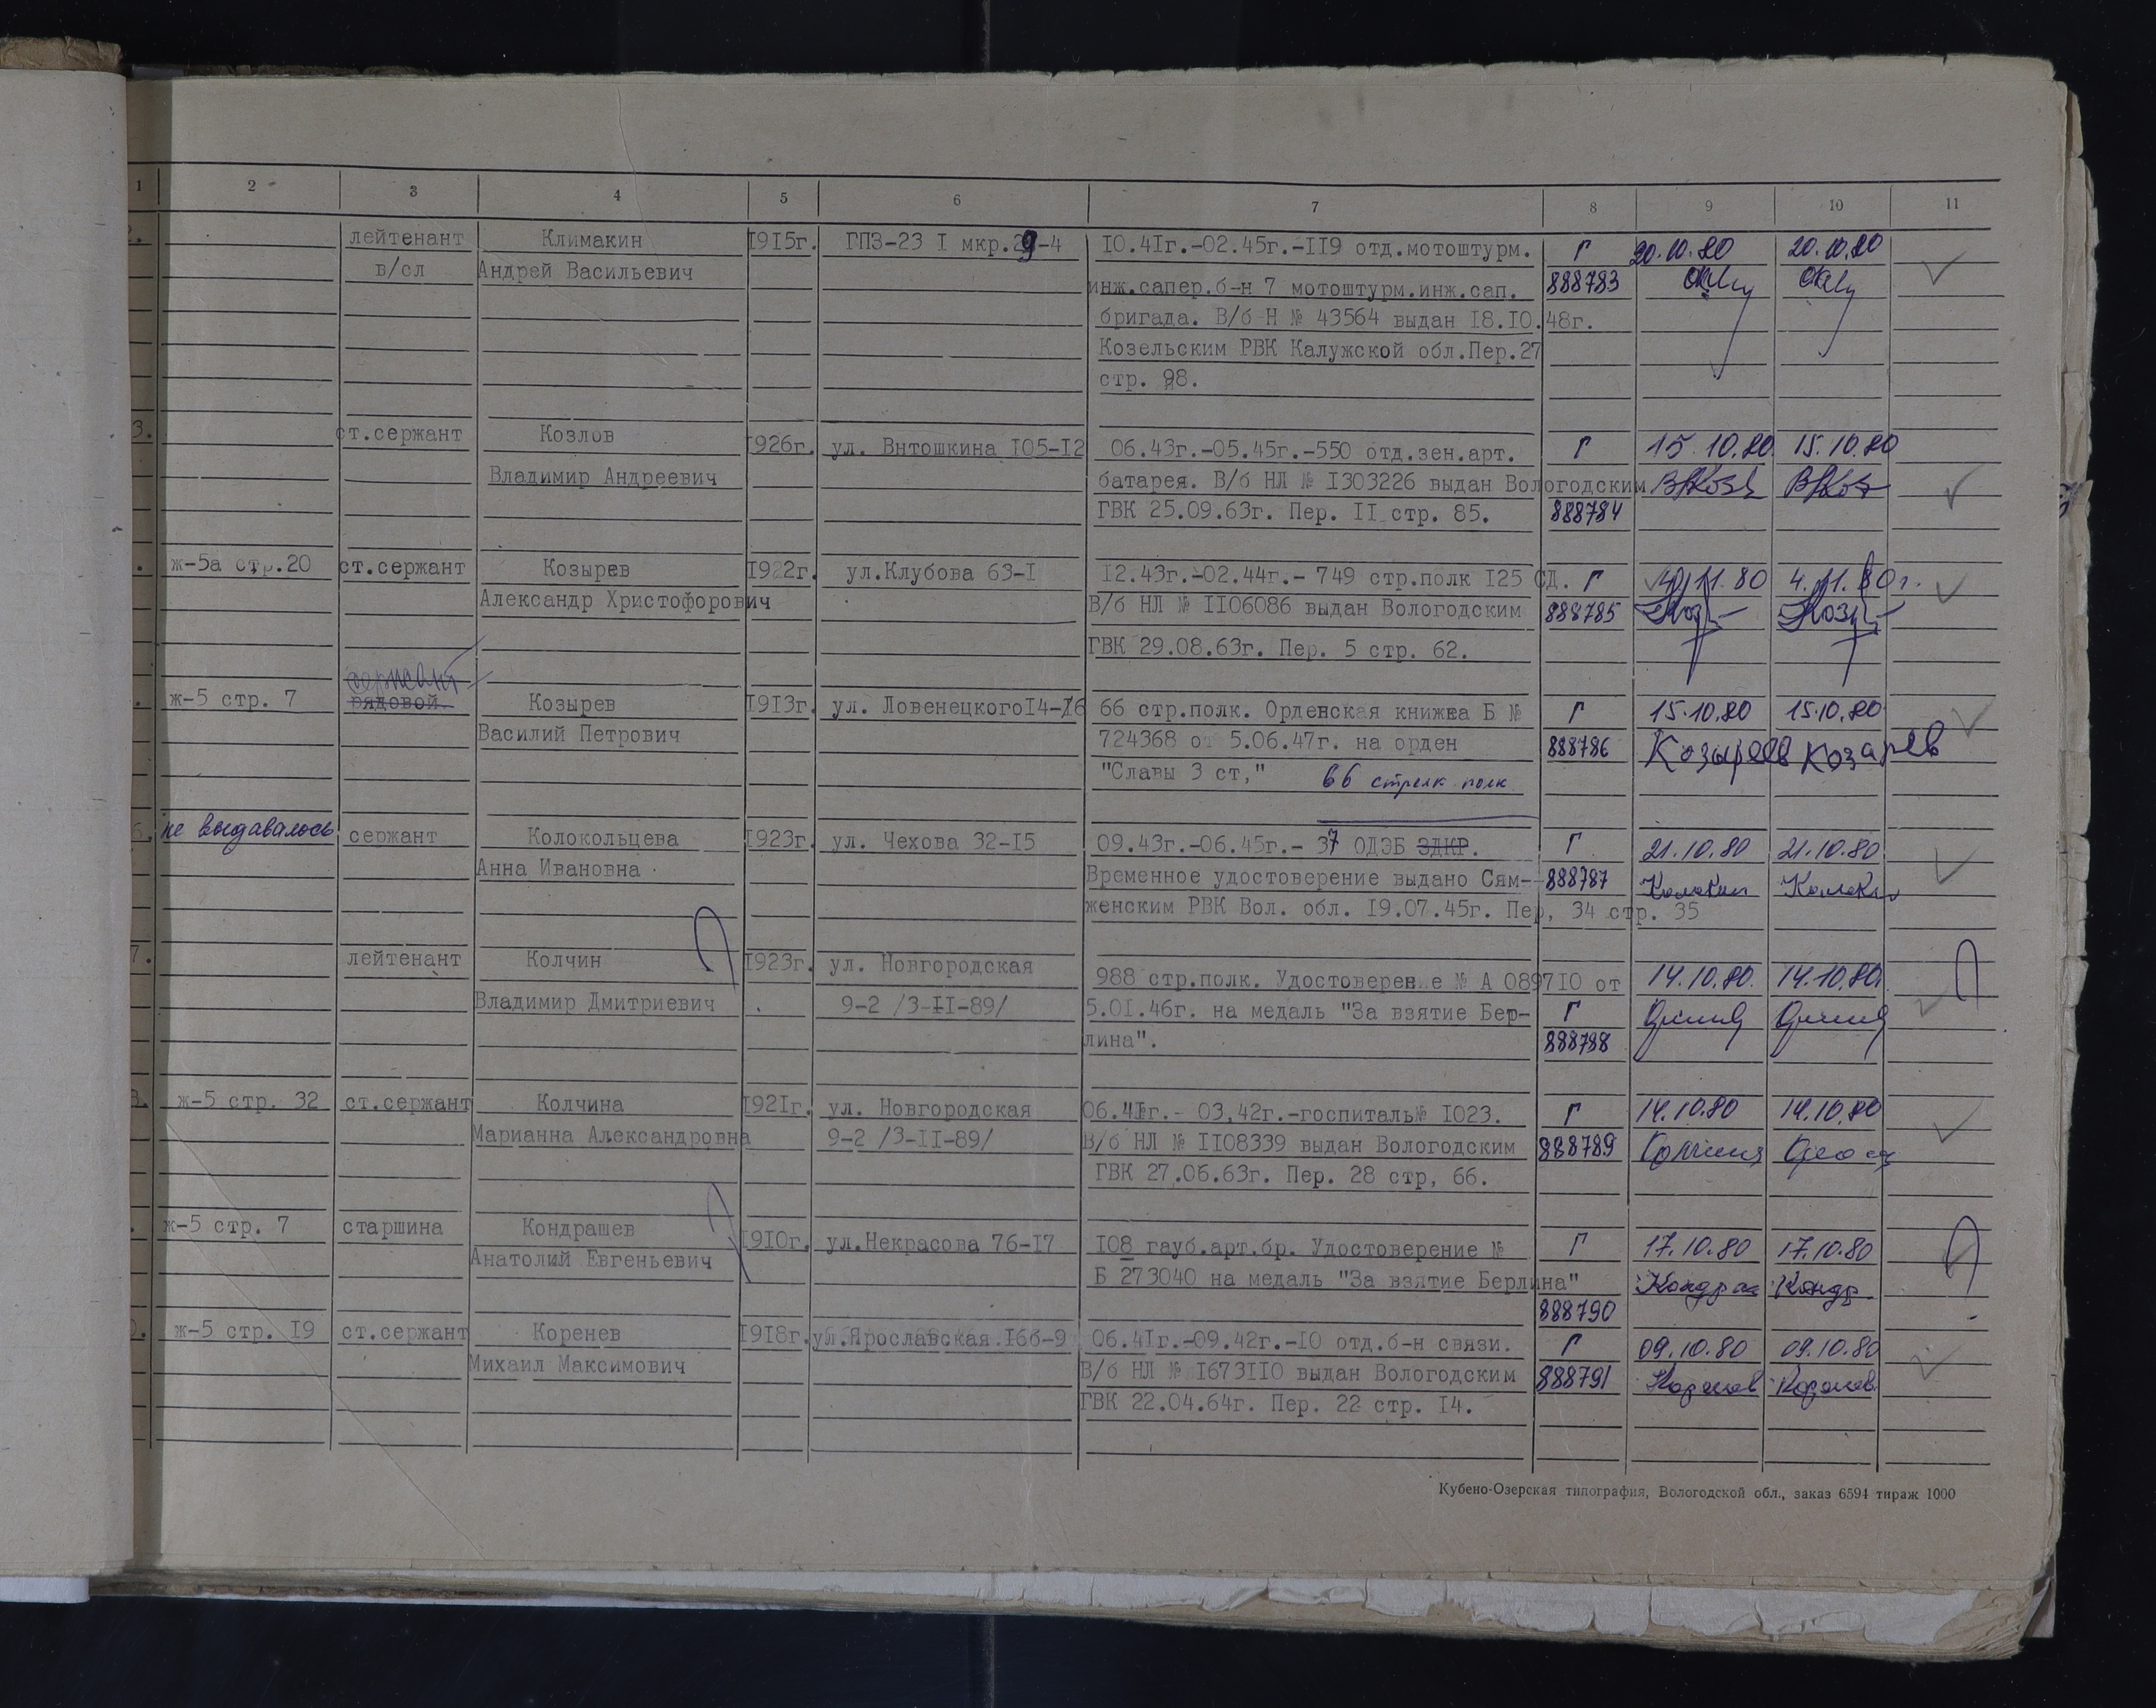 1 2 3 4 5 6 7 8 9 10 11
2. лейтенант Климакин 1915г. ГПЗ-23 I мкр.29-4 10.41г.-02.45г.-119 отд.мотоштурм. Г 20.10.80 20.10.80
в/сл Андрей Васильевич инж.сапер.б-н 7 мотоштурм.инж.сап. 888783
бригада. В/б Н № 43564 выдан 18.10.48г.
Козельским РВК Калужской обл.Пер.27
стр. 98.
3. ст.сержант Козлов 1926г. ул. Внтошкина 105-12 06.43г.-05.45г.-550 отд.зен.арт. Г 15.10.80 15.10.80
Владимир Андреевич батарея. В/б НЛ № 1303226 выдан Вологодским
ГВК 25.09.63г. Пер. II стр. 85. 888784
ж-5а стр.20 ст.сержант Козырев 1922г. ул.Клубова 63-1 12.43г.-02.44г.- 749 стр.полк 125 СД. Г 11.80 4.11.80г.
Александр Христофорович В/б НЛ № 1106086 выдан Вологодским 888785
ГВК 29.08.63г. Пер. 5 стр. 62.
сержант
ж-5 стр. 7 рядовой. Козырев 1913г. ул. Ловенецкого14-16 66 стр.полк. Орденская книжка Б № Г 15.10.80 15.10.80
Василий Петрович 724368 от 5.06.47г. на орден 888786 Козырев Козарев
"Славы 3 ст," 66 стрелк полк
6. не выдавалось сержант Колокольцева 1923г. ул. Чехова 32-15 09.43г.-06.45г.- 37 ОДЭБ ЗДКР. Г 21.10.80 21.10.80
Анна Ивановна Временное удостоверение выдано Сям- 888787
женским РВК Вол. обл. 19.07.45г. Пер, 34 стр. 35
7. лейтенант Колчин 1923г. ул. Новгородская 988 стр.полк. Удостоверение № А 089710 от 14.10.80. 14.10.80
Владимир Дмитриевич 9-2 /3-II-89/ 5.01.46г. на медаль "За взятие Бер- Г
лина". 888788
8. ж-5 стр. 32 ст.сержант Колчина 1921г. ул. Новгородская 06.41г.- 03,42г.-госпиталь№ 1023. Г 14.10.80 14.10.80
Марианна Александровна 9-2 /3-II-89/ В/б НЛ № 1108339 выдан Вологодским 888789
ГВК 27.06.63г. Пер. 28 стр, 66.
ж-5 стр. 7 старшина Кондрашев 1910г. ул.Некрасова 76-17 108 гауб.арт.бр. Удостоверение № Г 17.10.80 17.10.80
Анатолий Евгеньевич Б 273040 на медаль "За взятие Берлина"
888790
0. ж-5 стр. 19 ст.сержант Коренев 1918г. ул.Ярославская.16б-9 06.41г.-09.42г.-10 отд.б-н связи. Г 09.10.80 09.10.80
Михаил Максимович В/б НЛ № 1673110 выдан Вологодским 888791
ГВК 22.04.64г. Пер. 22 стр. 14.
Кубено-Озерская типография, Вологодской обл., заказ 6594 тираж 1000